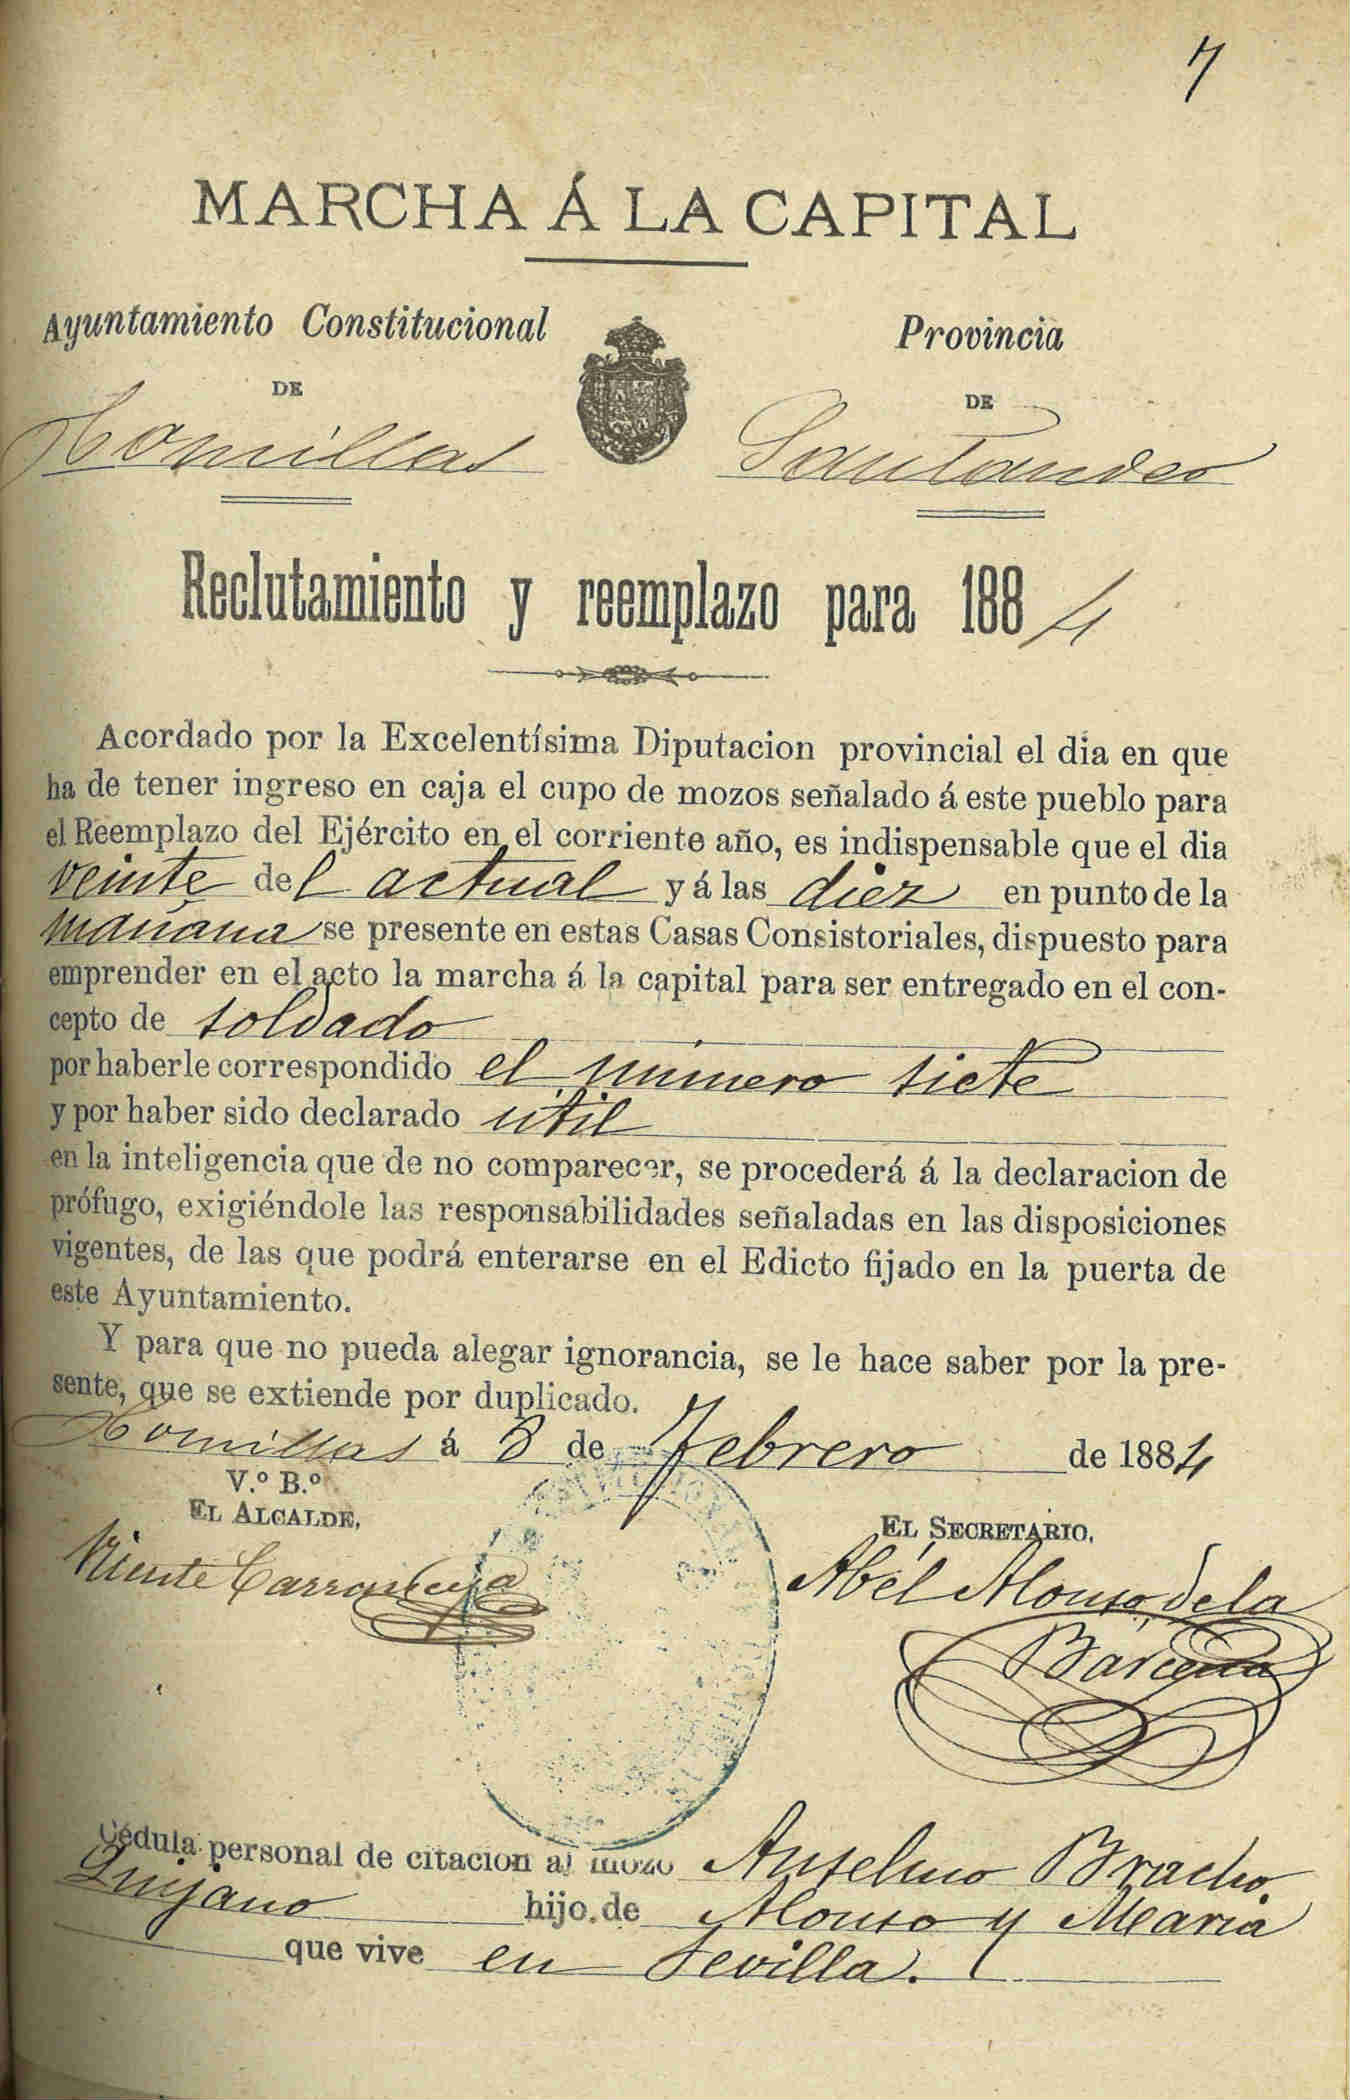 7
MARCHA Á LA CAPITAL
Ayuntamiento Constitucional
DE
Comillas
Provincia
DE
Santander
Reclutamiento y reemplazo para 1884
Acordado por la Excelentísima Diputacion provincial el dia en que
ha de tener ingreso en caja el cupo de mozos señalado á este pueblo para
el Reemplazo del Ejército en el corriente año, es indispensable que el dia
veinte del actual y á las diez en punto de la
mañana se presente en estas Casas Consistoriales, dispuesto para
emprender en el acto la marcha á la capital para ser entregado en el con-
cepto de soldado
por haberle correspondido el número siete
y por haber sido declarado útil
en la inteligencia que de no comparecer, se procederá á la declaracion de
prófugo, exigiéndole las responsabilidades señaladas en las disposiciones
vigentes, de las que podrá enterarse en el Edicto fijado en la puerta de
este Ayuntamiento.
Y para que no pueda alegar ignorancia, se le hace saber por la pre-
sente, que se extiende por duplicado.
Comillas á 8 de Febrero de 1884
V.º B.º
EL ALCALDE,
EL SECRETARIO,
Abél Alonso de la
Bárcena
Cédula personal de citacion al mozo Anselmo Bracho
Quijano hijo de Alonso y Maria
que vive en Sevilla.